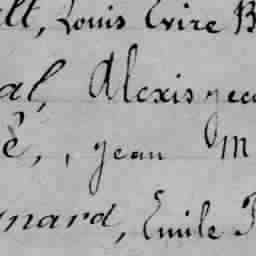 llt, Louis Evire B
al, Alexis jea
è, , jean M
gnard, Emile